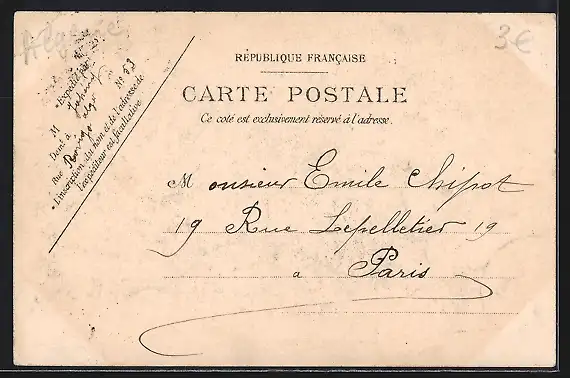 Algérie
3€
RÉPUBLIQUE FRANÇAISE
CARTE POSTALE
Ce coté est exclusivement réservé à l'adresse.
Expédié par
M
Demt à
Rue Rovigo Nº 53
L'inscription du nom et de l'adresse de
l'expéditeur est facultative.
Monsieur Emile Chipot
19 Rue Lepelletier 19
a Paris